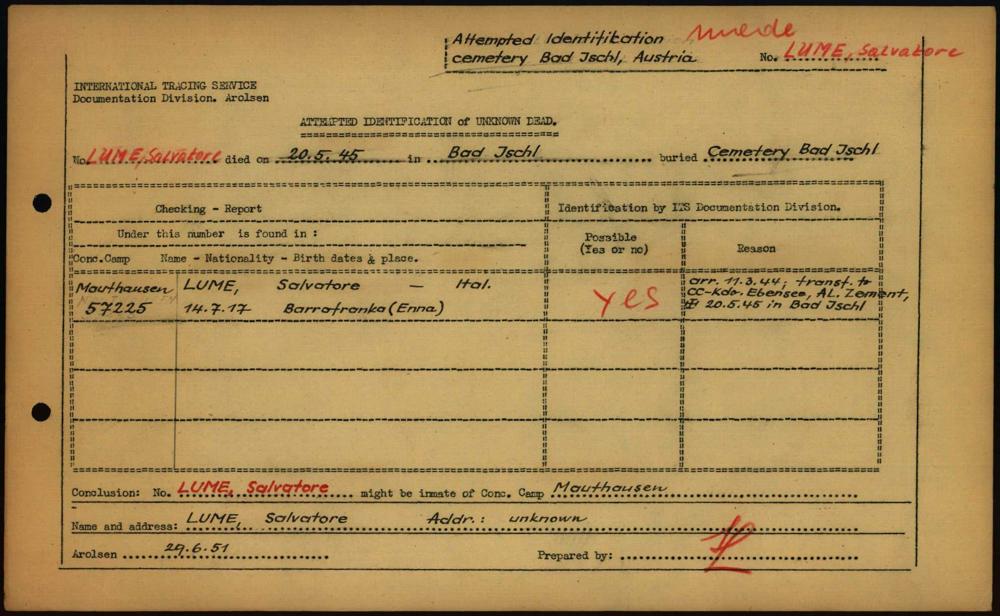 Attempted Identification
cemetery Bad Jschl, Austria
No. LUME, Salvatore
INTERNATIONAL TRACING SERVICE
Documentation Division. Arolsen
ATTEMPTED IDENTIFICATION of UNKNOWN DEAD.
No. LUME, Salvatore died on 20.5.45 in Bad Jschl buried Cemetery Bad Jschl
Checking - Report
Identification by ITS Documentation Division.
Under this number is found in :
Possible
(Yes or no)
Reason
Conc.Camp Name - Nationality - Birth dates & place.
Mauthausen LUME, Salvatore — Ital.
57225 14.7.17 Barrafranka (Enna)
yes
arr. 11.3.44; transf. to
CC-Kdo. Ebensee, AL. Zement,
20.5.45 in Bad Jschl
Conclusion: No. LUME, Salvatore might be inmate of Conc. Camp Mauthausen
Name and address: LUME, Salvatore Addr.: unknown
Arolsen 29.6.51 Prepared by: